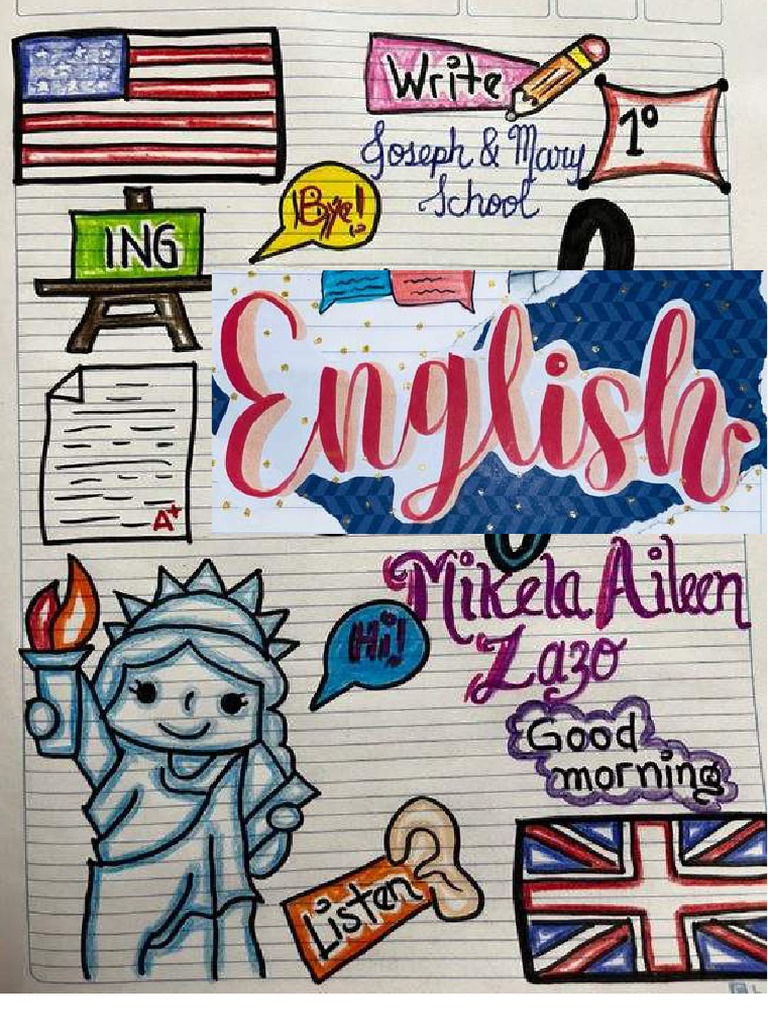 Write
1º
Joseph & Mary
School
Bye!
ING
English
A+
Mikela Aileen
Zazo
Hi!
Good
morning
Listen